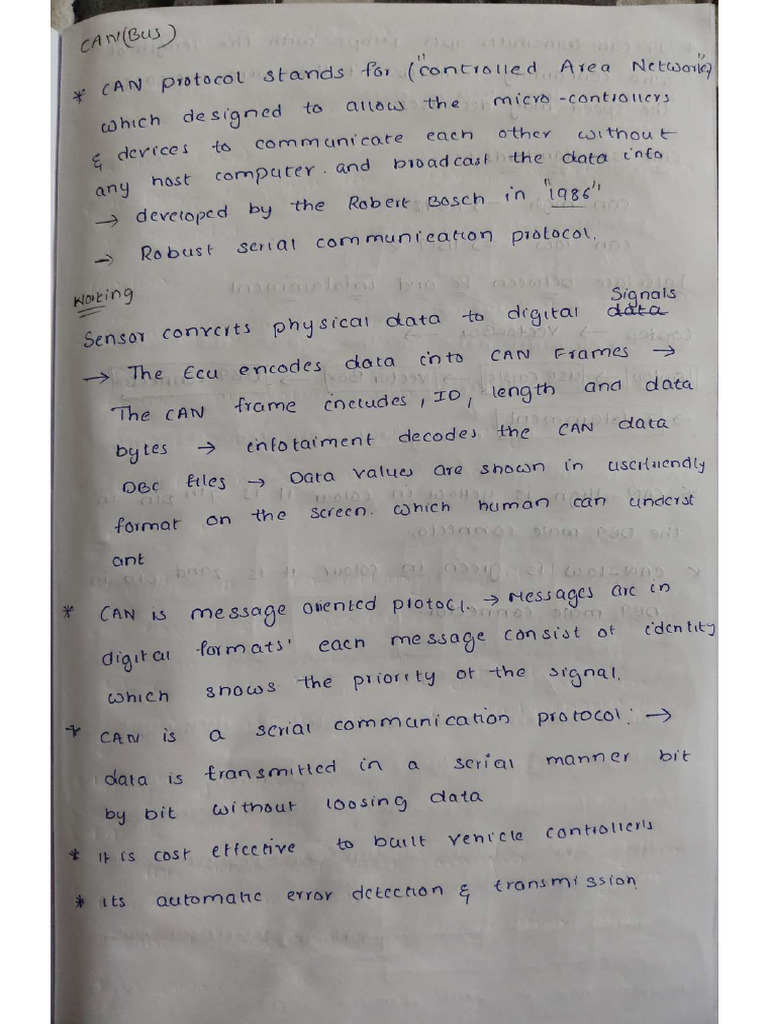 CAN(Bus)
* CAN protocol stands for ("controlled Area Network")
which designed to allow the micro-controllers
& devices to communicate each other without
any host computer. and broadcast the data info
→ developed by the Robert Bosch in "1986"
→ Robust serial communication protocol.
Working
Signals
Sensor converts physical data to digital data
→ The Ecu encodes data into CAN Frames →
The CAN frame includes, ID, length and data
bytes → infotaiment decodes the CAN data
DBC files → Data values are shown in userfriendly
format on the screen. which human can underst
ant
* CAN is message oriented protocl. → Messages are in
digital formats' each message consist of identity
which shows the priority of the signal.
* CAN is a serial communication protocol: →
data is transmitted in a serial manner bit
by bit without loosing data
* it is cost effective to built vehicle controllers
* its automatic error detection & transmission